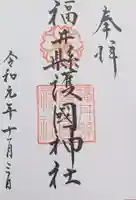 奉拝
福井縣護國神社
令和元年十一月三日